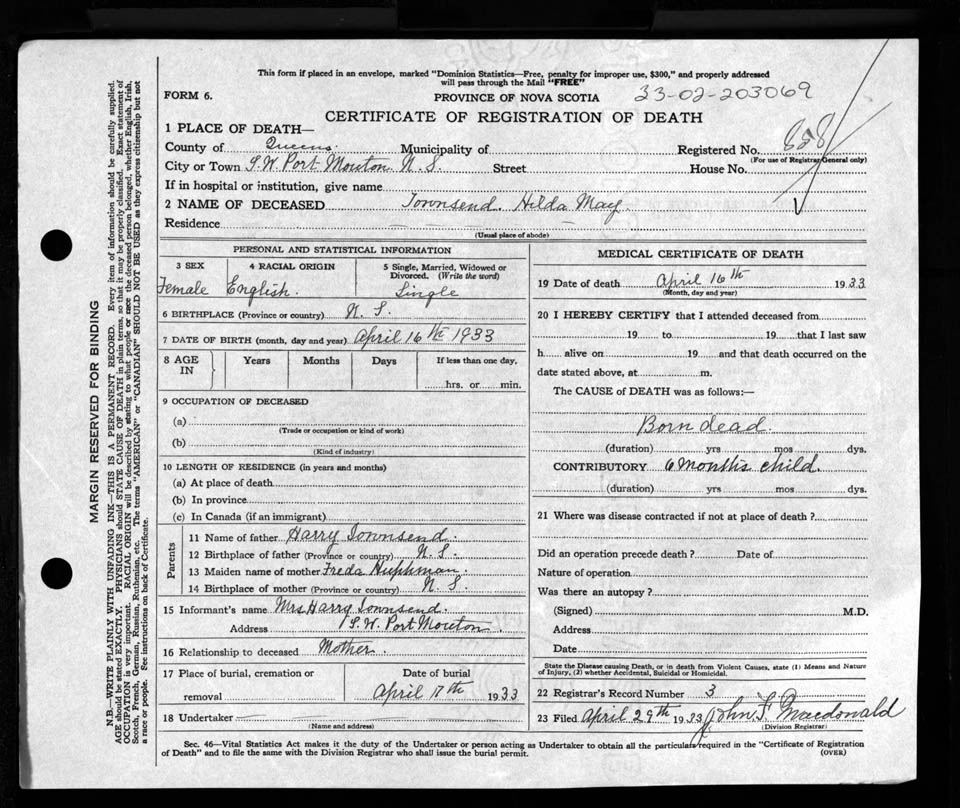 This form if placed in an envelope, marked "Dominion Statistics—Free, penalty for improper use, $300," and properly addressed
will pass through the Mail "FREE"
FORM 6.
PROVINCE OF NOVA SCOTIA
33-02-203069
CERTIFICATE OF REGISTRATION OF DEATH
1 PLACE OF DEATH—
County of Queens. Municipality of Registered No. 858
(For use of Registrar General only)
City or Town S.W. Port Mouton N. S. Street House No.
If in hospital or institution, give name
2 NAME OF DECEASED Townsend. Hilda May.
Residence
(Usual place of abode)
PERSONAL AND STATISTICAL INFORMATION
3 SEX
Female
4 RACIAL ORIGIN
English.
5 Single, Married, Widowed or
Divorced. (Write the word)
Single
6 BIRTHPLACE (Province or country) N. S.
7 DATE OF BIRTH (month, day and year) April 16th 1933
8 AGE
IN
Years
Months
Days
If less than one day,
hrs. or min.
9 OCCUPATION OF DECEASED
(a)
(Trade or occupation or kind of work)
(b)
(Kind of industry)
10 LENGTH OF RESIDENCE (in years and months)
(a) At place of death
(b) In province
(c) In Canada (if an immigrant)
Parents
11 Name of father Harry Townsend.
12 Birthplace of father (Province or country) N. S.
13 Maiden name of mother Freda Huphman
14 Birthplace of mother (Province or country) N. S
15 Informant's name Mrs Harry Townsend.
Address S.W. Port Mouton.
16 Relationship to deceased Mother.
17 Place of burial, cremation or
removal
Date of burial
April 17th 1933
18 Undertaker
(Name and address)
MEDICAL CERTIFICATE OF DEATH
19 Date of death April 16th 1933
(Month, day and year)
20 I HEREBY CERTIFY that I attended deceased from
19 to 19 that I last saw
h alive on 19 and that death occurred on the
date stated above, at m.
The CAUSE of DEATH was as follows:
Born dead.
(duration) yrs mos dys.
CONTRIBUTORY 6 months child.
(duration) yrs mos dys.
21 Where was disease contracted if not at place of death ?
Did an operation precede death ? Date of
Nature of operation
Was there an autopsy ?
(Signed) M.D.
Address
Date
State the Disease causing Death, or in death from Violent Causes, state (1) Means and Nature
of Injury, (2) whether Accidental, Suicidal or Homicidal.
22 Registrar's Record Number 3
23 Filed April 29th 1933 John F. Macdonald
(Division Registrar)
Sec. 46—Vital Statistics Act makes it the duty of the Undertaker or person acting as Undertaker to obtain all the particulars required in the "Certificate of Registration
of Death" and to file the same with the Division Registrar who shall issue the burial permit.
(OVER)
MARGIN RESERVED FOR BINDING
N.B—WRITE PLAINLY WITH UNFADING INK—THIS IS A PERMANENT RECORD. Every item of information should be carefully supplied.
AGE should be stated EXACTLY. PHYSICIANS should STATE CAUSE OF DEATH in plain terms, so that it may be properly classified. Exact statement of
OCCUPATION is very important. RACIAL ORIGIN will be described by stating to what people or race the deceased person belonged, whether English, Irish,
Scotch, French, German, Russian, Ruthenian, etc. The terms "AMERICAN" or "CANADIAN" SHOULD NOT BE USED as they express citizenship but not
a race or people. See instructions on back of Certificate.